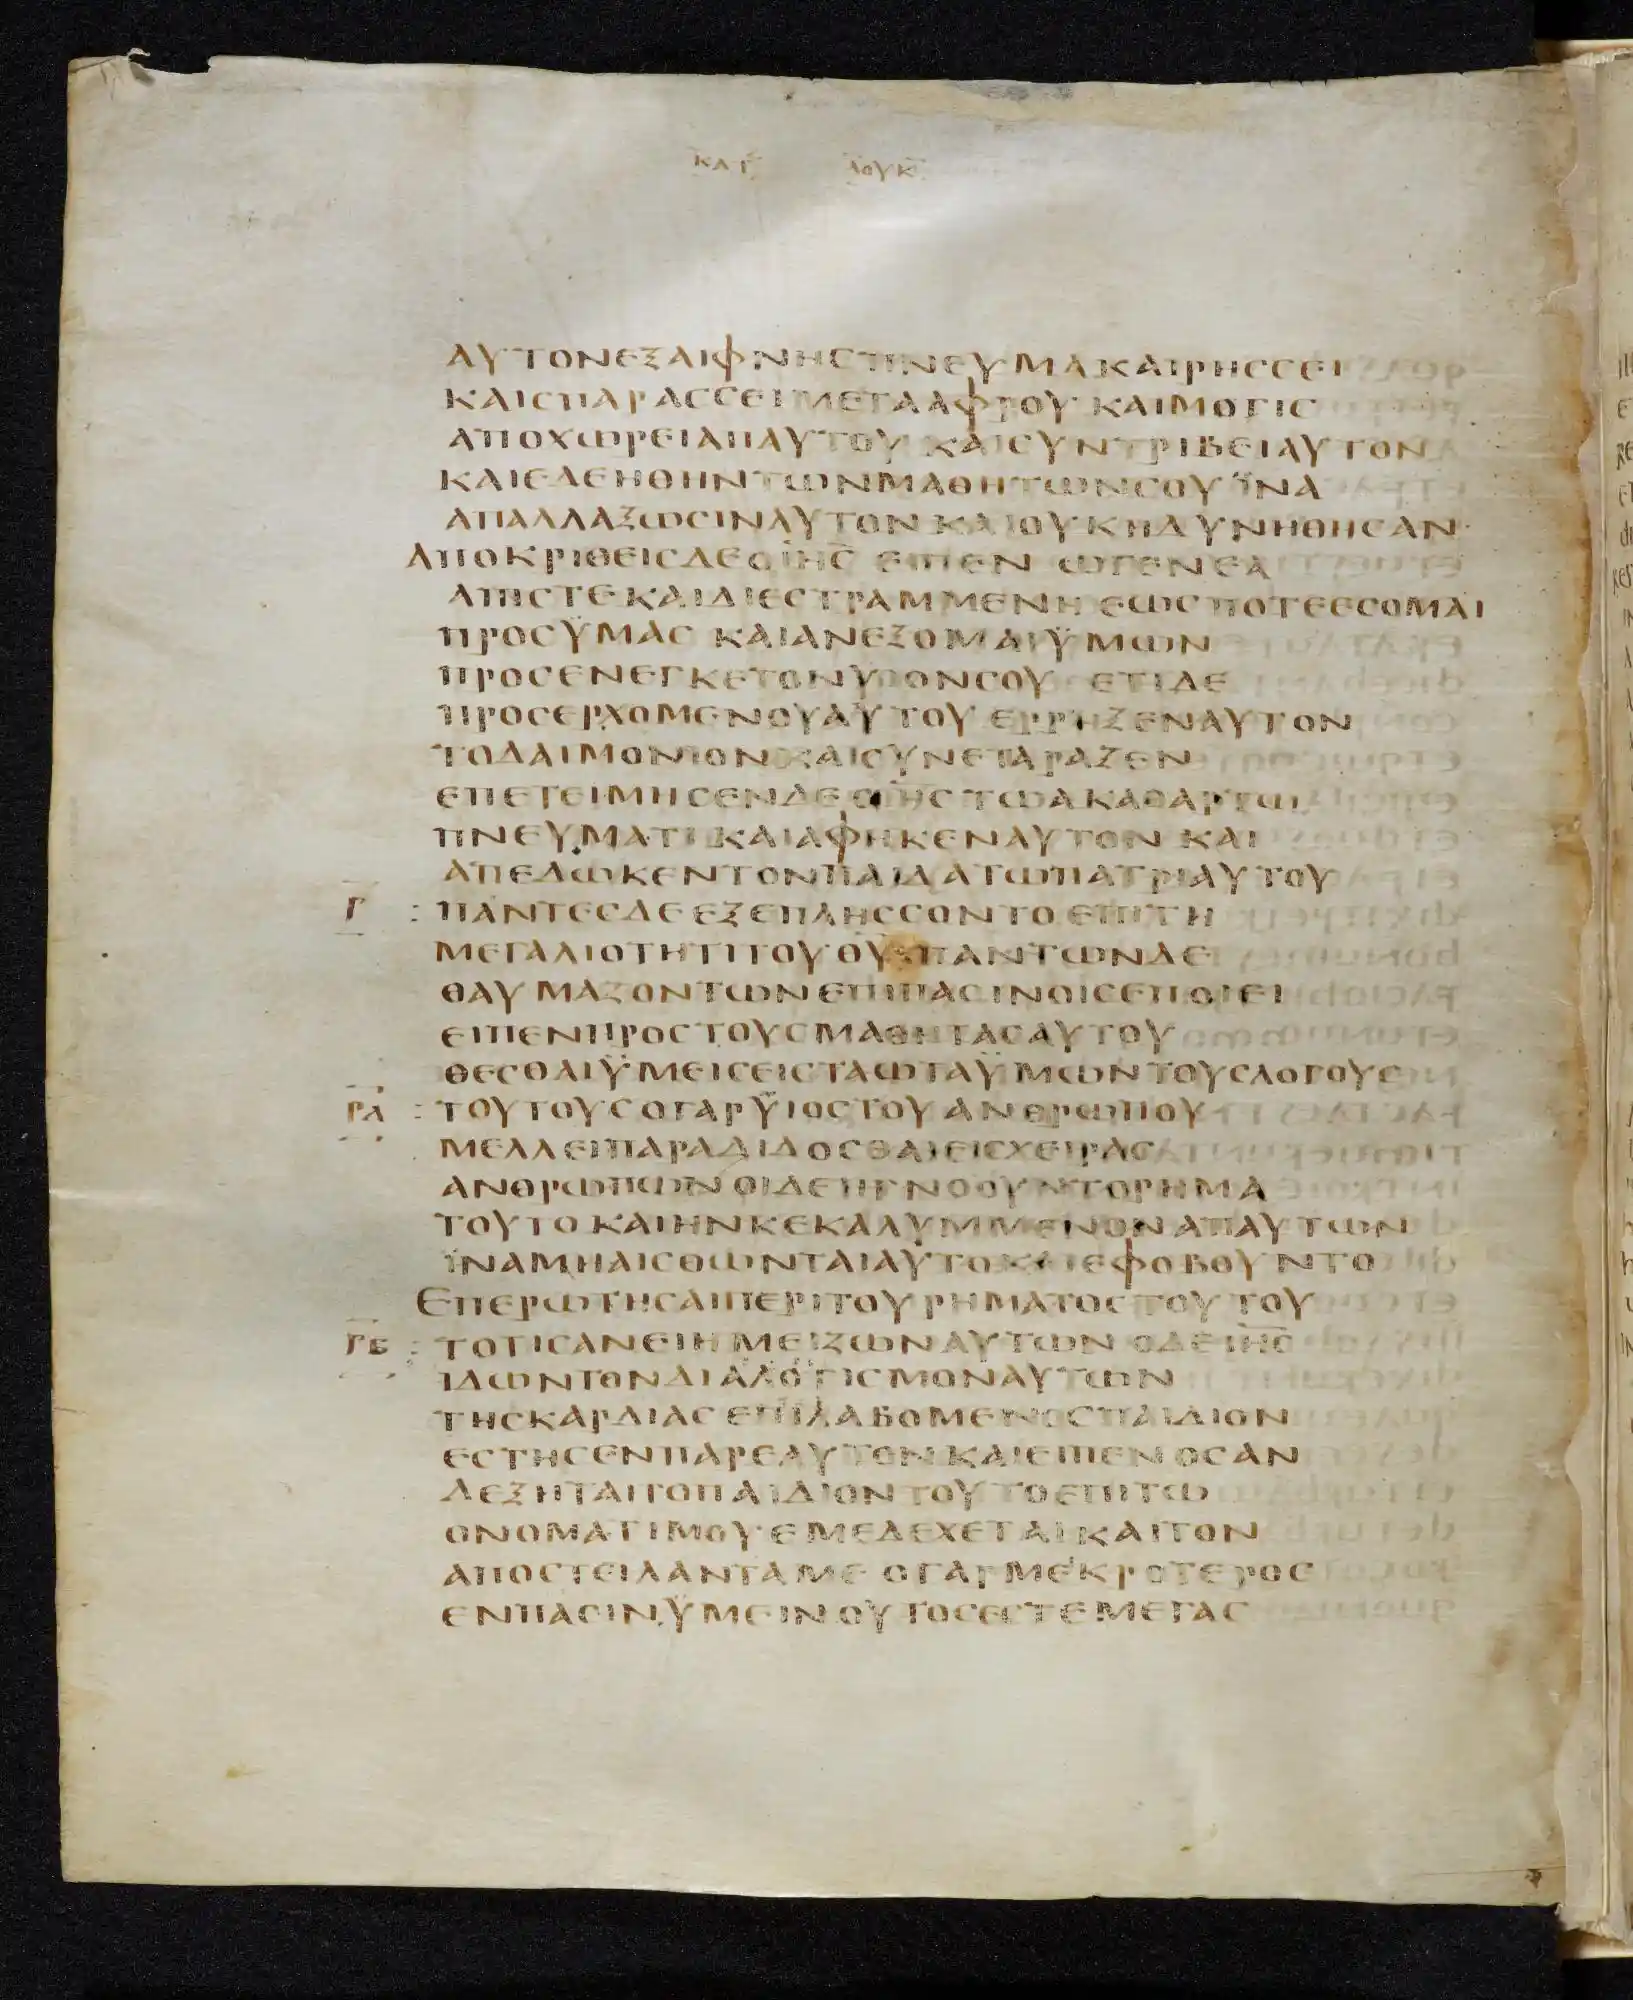 ΚΑΤ ΛΟΥΚ
ΑΥΤΟΝΕΞΑΙΦΝΗϹΠΝΕΥΜΑΚΑΙΡΗϹϹΕΙ
ΚΑΙϹΠΑΡΑϹϹΕΙΜΕΤΑΑΦΡΟΥ ΚΑΙΜΟΓΙϹ
ΑΠΟΧΩΡΕΙΑΠΑΥΤΟΥ ΚΑΙϹΥΝΤΡΙΒΕΙΑΥΤΟΝ
ΚΑΙΕΔΕΗΘΗΝΤΩΝΜΑΘΗΤΩΝϹΟΥ ΪΝΑ
ΑΠΑΛΛΑΞΩϹΙΝΑΥΤΟΝ ΚΑΙΟΥΚΗΔΥΝΗΘΗϹΑΝ
ΑΠΟΚΡΙΘΕΙϹΔΕΟΙΗϹ ΕΙΠΕΝ ΩΓΕΝΕΑ
ΑΠΙϹΤΕΚΑΙΔΙΕϹΤΡΑΜΜΕΝΗ ΕΩϹΠΟΤΕΕϹΟΜΑΙ
ΠΡΟϹΫΜΑϹ ΚΑΙΑΝΕΞΟΜΑΙΫΜΩΝ
ΠΡΟϹΕΝΕΓΚΕΤΟΝΥΙΟΝϹΟΥ ΕΤΙΔΕ
ΠΡΟϹΕΡΧΟΜΕΝΟΥΑΥΤΟΥ ΕΡΡΗΞΕΝΑΥΤΟΝ
ΤΟΔΑΙΜΟΝΙΟΝΚΑΙϹΥΝΕΤΑΡΑΞΕΝ
ΕΠΕΤΕΙΜΗϹΕΝΔΕΟΙΗϹ ΤΩΑΚΑΘΑΡΤΩ
ΠΝΕΥΜΑΤΙ ΚΑΙΑΦΗΚΕΝΑΥΤΟΝ ΚΑΙ
ΑΠΕΔΩΚΕΝΤΟΝΠΑΙΔΑΤΩΠΑΤΡΙΑΥΤΟΥ
Γ : ΠΑΝΤΕϹΔΕΕΞΕΠΛΗϹϹΟΝΤΟ ΕΠΙΤΗ
ΜΕΓΑΛΙΟΤΗΤΙΤΟΥΘΥ ΠΑΝΤΩΝΔΕ
ΘΑΥΜΑΖΟΝΤΩΝΕΠΙΠΑϹΙΝΟΙϹΕΠΟΙΕΙ
ΕΙΠΕΝΠΡΟϹΤΟΥϹΜΑΘΗΤΑϹΑΥΤΟΥ
ΘΕϹΘΑΙΫΜΕΙϹΕΙϹΤΑΩΤΑΫΜΩΝΤΟΥϹΛΟΓΟΥϹ
ΡΑ : ΤΟΥΤΟΥϹΟΓΑΡΫΙΟϹΤΟΥΑΝΘΡΩΠΟΥ
ΜΕΛΛΕΙΠΑΡΑΔΙΔΟϹΘΑΙΕΙϹΧΕΙΡΑϹ
ΑΝΘΡΩΠΩΝ ΟΙΔΕΗΓΝΟΟΥΝΤΟΡΗΜΑ
ΤΟΥΤΟ ΚΑΙΗΝΚΕΚΑΛΥΜΜΕΝΟΝΑΠΑΥΤΩΝ
ΪΝΑΜΗΑΙϹΘΩΝΤΑΙΑΥΤΟΚΑΙΕΦΟΒΟΥΝΤΟ
ΕΠΕΡΩΤΗϹΑΙΠΕΡΙΤΟΥΡΗΜΑΤΟϹΤΟΥΤΟΥ
ΡΒ : ΤΟΤΙϹΑΝΕΙΗΜΕΙΖΩΝΑΥΤΩΝ ΟΔΕΙΗϹ
ΙΔΩΝΤΟΝΔΙΑΛΟΓΙϹΜΟΝΑΥΤΩΝ
ΤΗϹΚΑΡΔΙΑϹΕΠΙΛΑΒΟΜΕΝΟϹΠΑΙΔΙΟΝ
ΕϹΤΗϹΕΝΠΑΡΕΑΥΤΟΝΚΑΙΕΙΠΕΝ ΟϹΑΝ
ΔΕΞΗΤΑΙΤΟΠΑΙΔΙΟΝΤΟΥΤΟΕΠΙΤΩ
ΟΝΟΜΑΤΙΜΟΥ ΕΜΕΔΕΧΕΤΑΙ ΚΑΙΤΟΝ
ΑΠΟϹΤΕΙΛΑΝΤΑΜΕ ΟΓΑΡΜΕΙΚΡΟΤΕΡΟϹ
ΕΝΠΑϹΙΝΫΜΕΙΝΟΥΤΟϹΕϹΤΕΜΕΓΑϹ